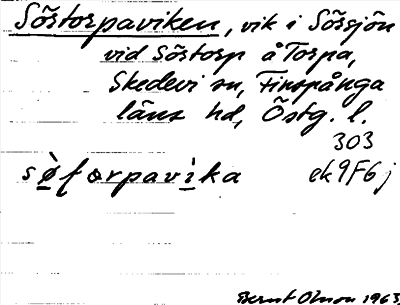 Sörstorpaviken, vik i Sörsjön
vid Sörstorp å Torpa,
Skedevi sn, Finspånga
läns hd, Östg. l.
303
sø̀ʃɷrpavìka ek 9F6j
Bernt Olsson 1963